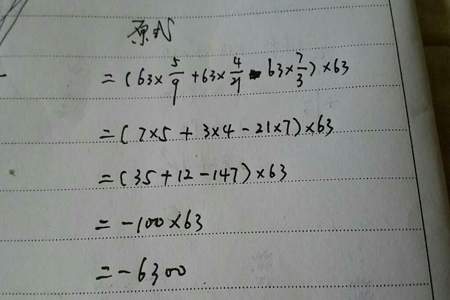 原式
=(63×5/9+63×4/21-63×7/3)×63
=(7×5+3×4-21×7)×63
=(35+12-147)×63
=-100×63
=-6300